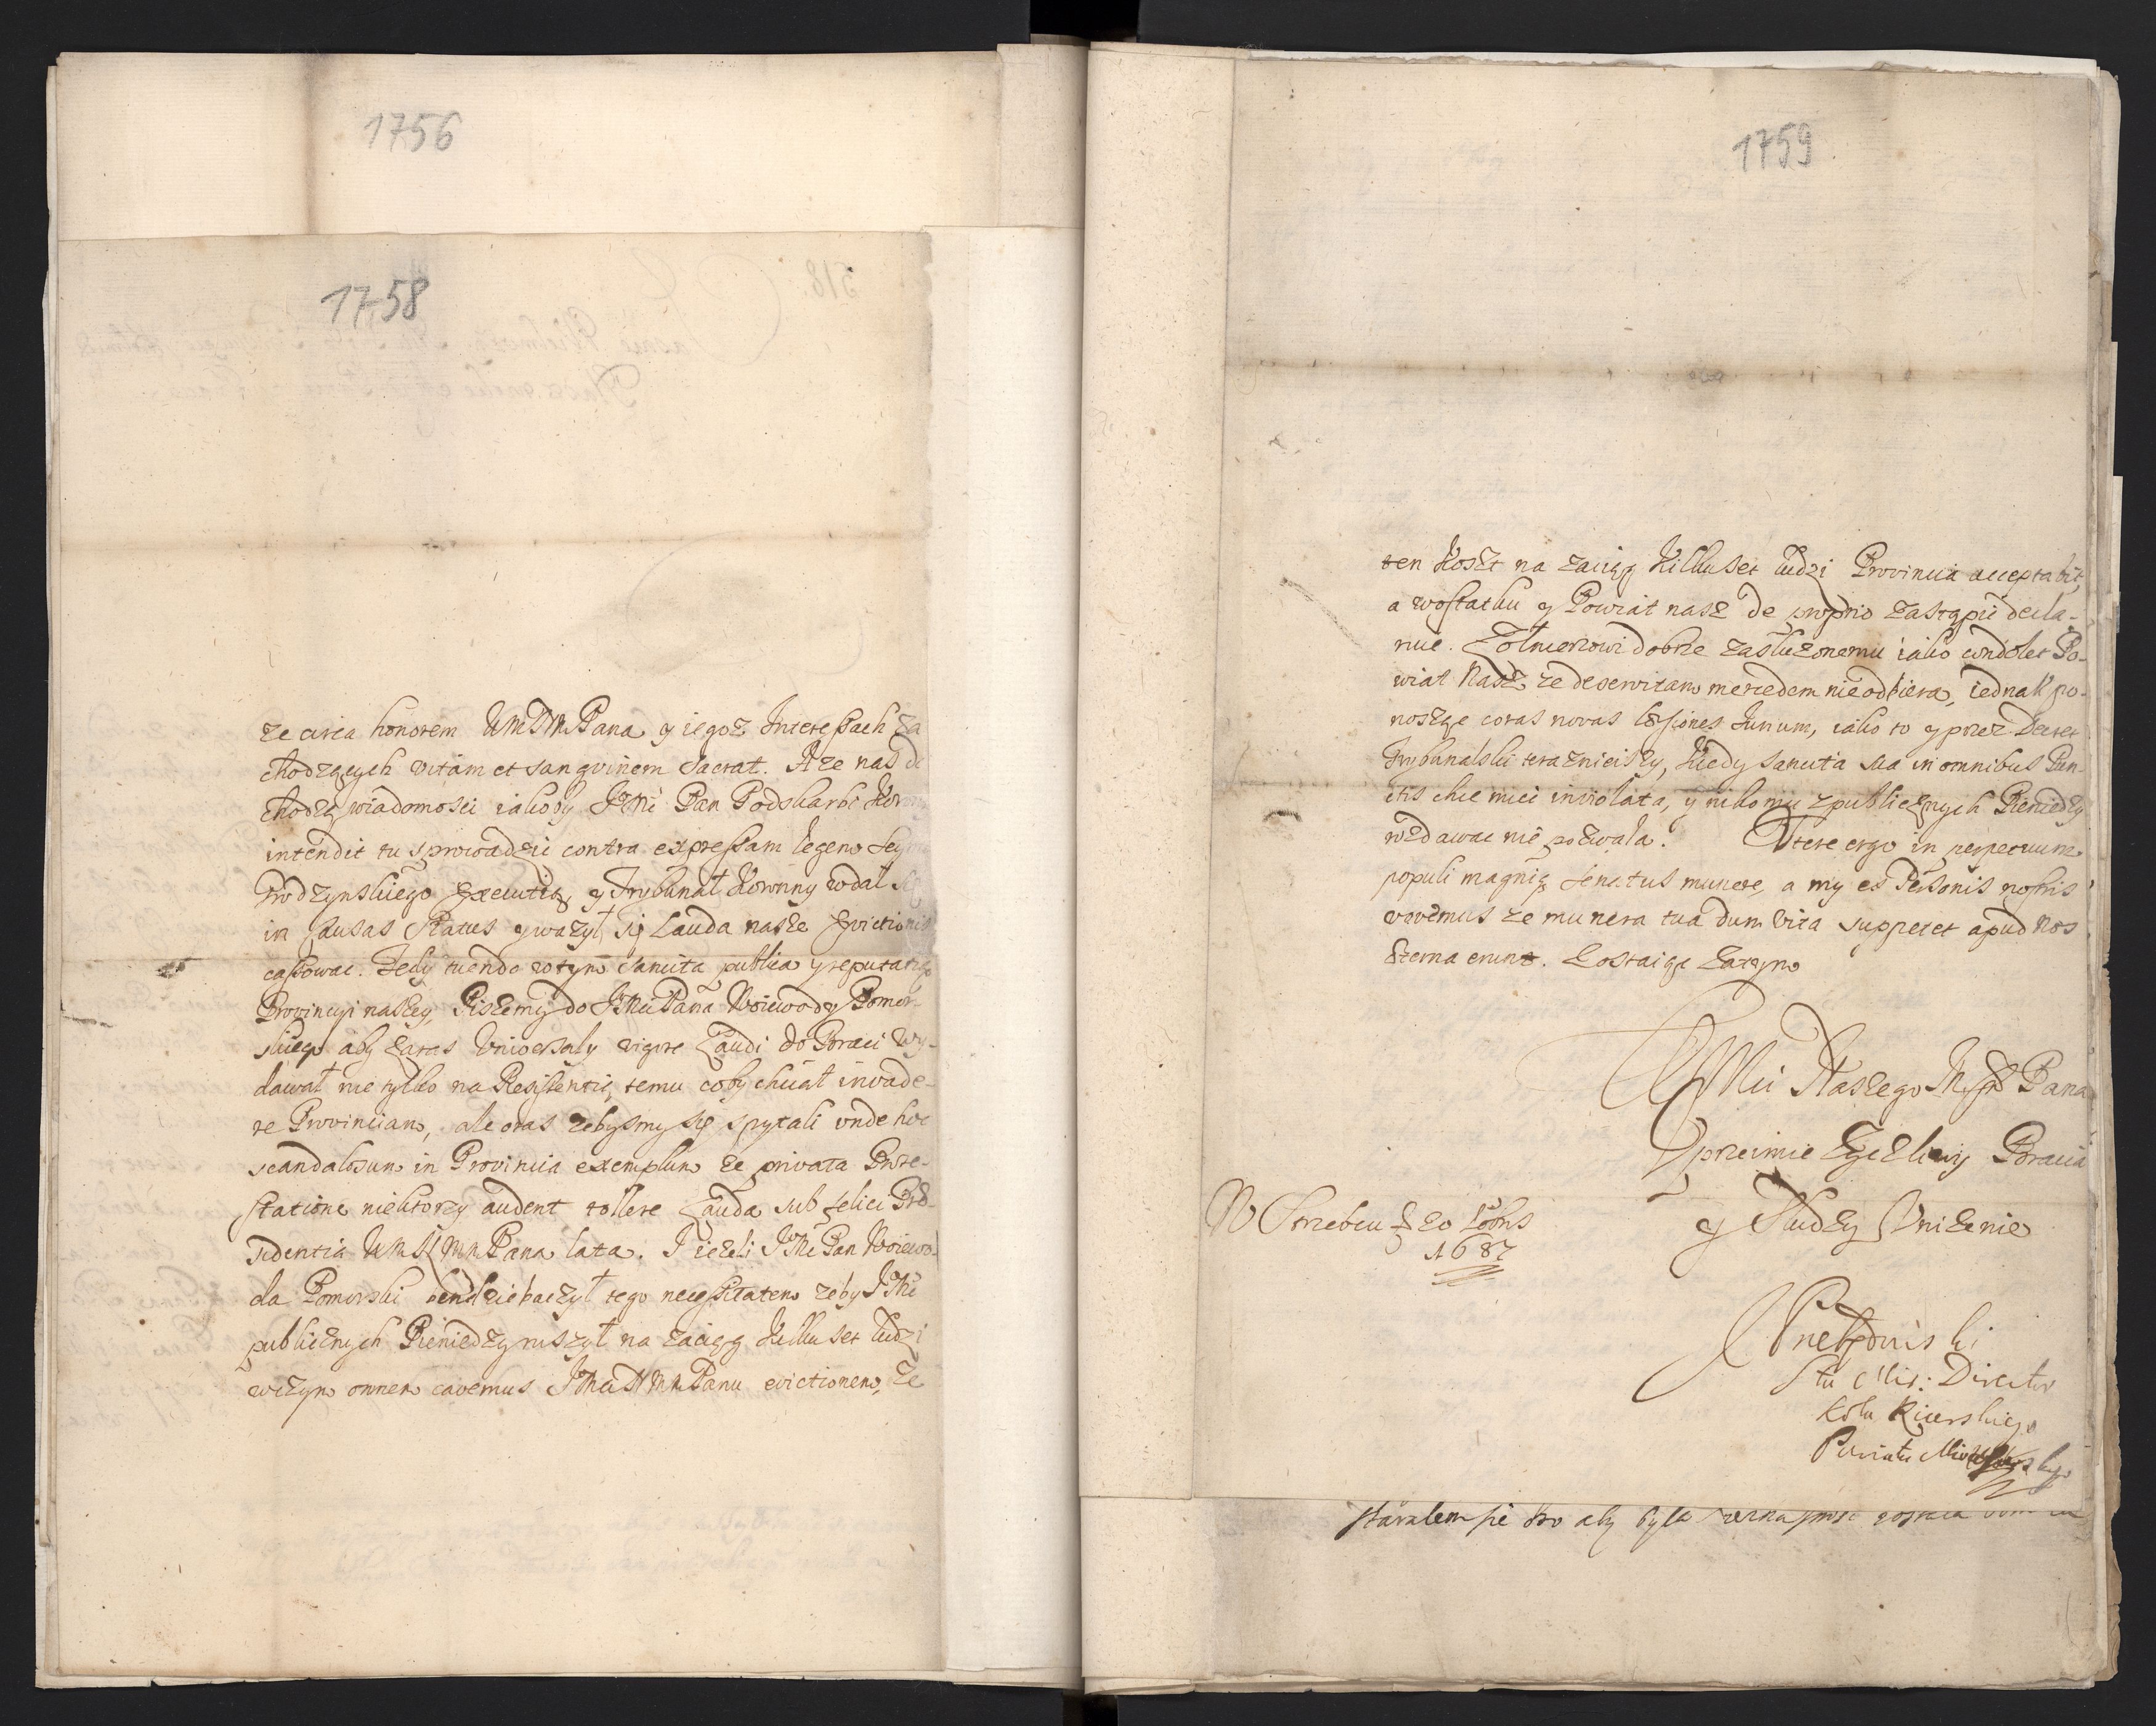 1756
1758
518
ze circa honorem WMMPana y iegoz Interessach za
chodzących vitam et sangvinem sacrat. A ze nas do
chodzą wiadomosci iakoby JMć Pan Podskarbi Koronny
intendit tu sprowadzić contra expressam legem Seymu
Grodzynskiego Executią, y Trybunał Koronny wdał się
in causas Status y ważył się Lauda nasze Evictionis
cassować. Tedy tuendo wtym sancita publica y reputatią
Provincyi naszey, Piszemy do JMći Pana Woiewody Pomor-
skiego aby zaras Vniversały vigore Laudi do Braci wy-
dawał nie tylko na Resistentią temu coby chciał invade-
re Provinciam, ale oras zebysmy się spytali unde hoc
scandalosum in Provincia exemplum ze privata
statione niektorzy audent tollere Lauda sub felici Præ-
sidentia WMMPana lata. I iezeli JMć Pan Woiewo-
da Pomorski bendzie baczył tego necessitatem zeby JMć
publicznych Pieniedzy ruszył na zaciąg kilku set ludzi
wczym omnem cavemus JMći MMPanu evictionem, ze
1759
ten koszt na zaciąg kilkuset ludzi Provincia acceptabit,
a wostatku y Powiat nasz de proprio zastąpić decla-
ruie. Zołnierzowi dobrze zasłuzonemu iako condolet Po-
wiat Nasz, ze deservitam mercedem nie odbiera, iednak po-
noszące coras novas læsiones Iurium, iako to y przez Decret
Trybunalski teraznieiszy, kiedy sancita sua in omnibus Pun-
ctis chce mieć inviolata, y nikomu zpublicznych Pieniedzy
wydawac nie pozwala. Vtere ergo in perpetuum
populi magniq Senatus munere, a my ex Personis nostris
vovemus ze munera tua dum vita suppetet apud nos
æterna erunt. Zostaiąc zatym
WMći Naszego Mśc Pana
Vprzeimie Zyczliwi Bracia
y Słudzy Vnizenie
W Skrzebcu D 20 Xbris
1687
Director
Koła Ricerskiego
Powiatu
starałem się o to aby była